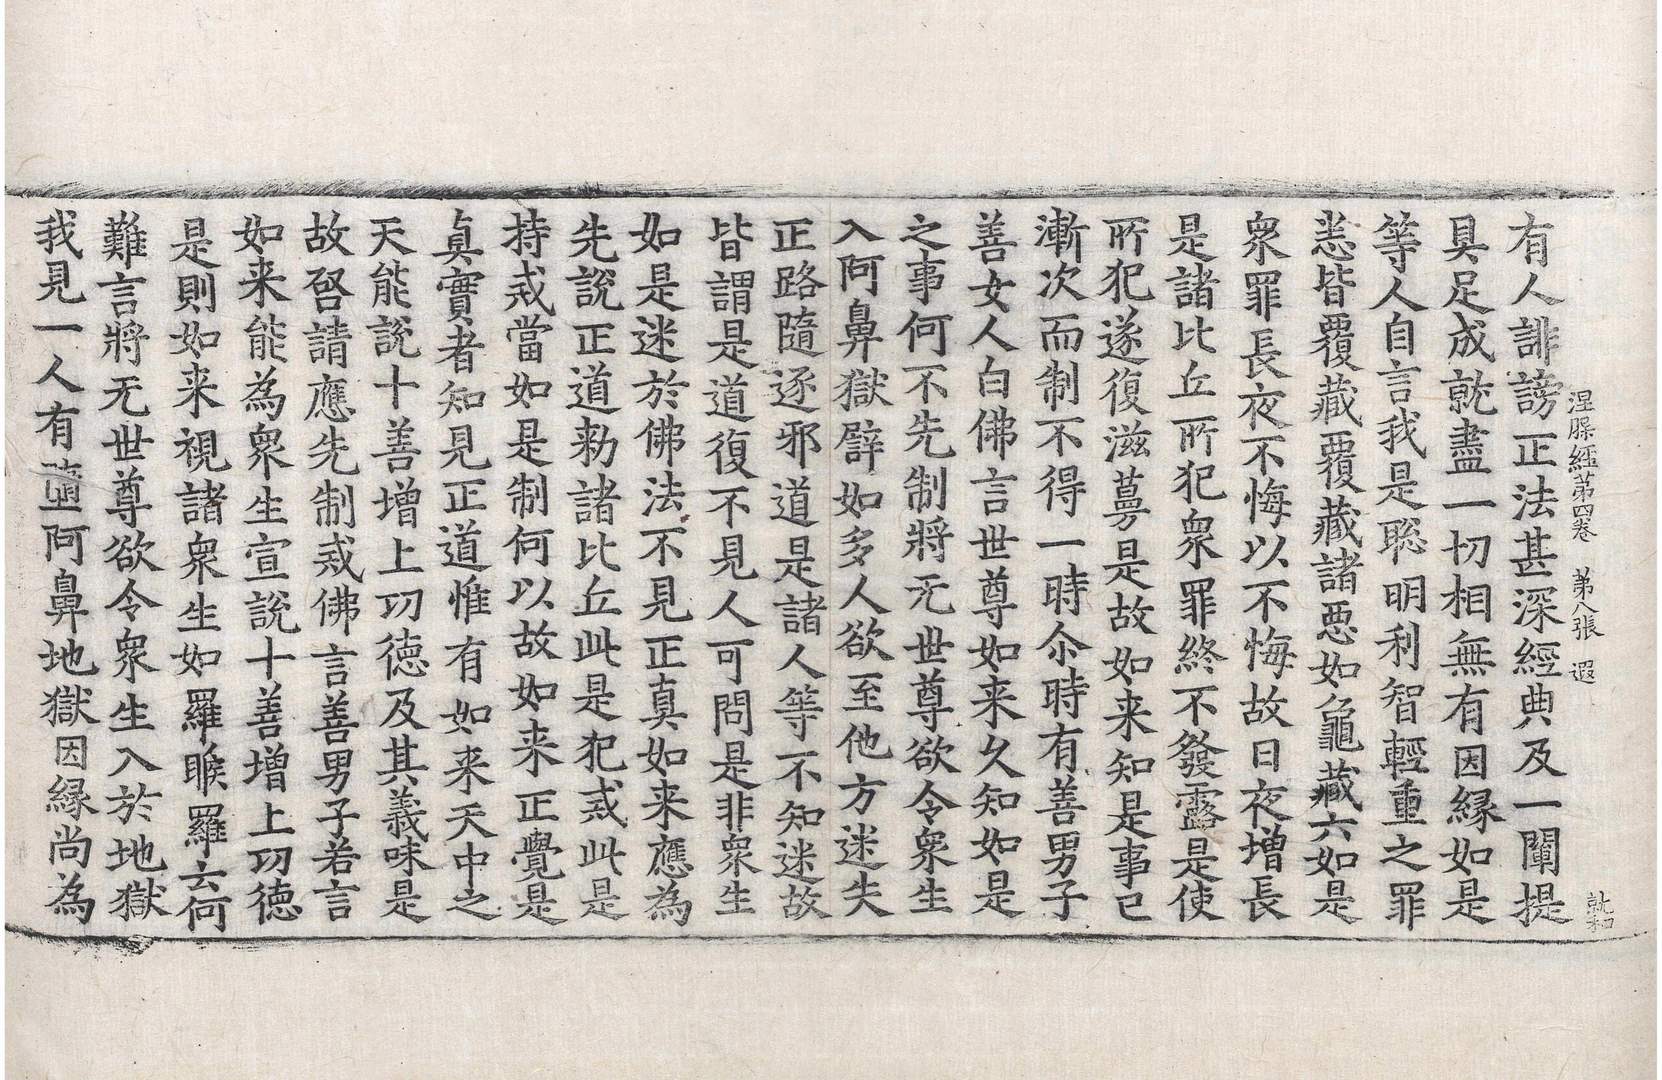 涅槃經第四卷 第八張 遐
就和
有人誹謗正法甚深經典及一闡提
具足成就盡一切相無有因緣如是
等人自言我是聡明利智輕重之罪
悉皆覆藏覆藏諸悪如龜藏六如是
衆罪長夜不悔以不悔故日夜增長
是諸比丘所犯衆罪終不發露是使
所犯遂復滋蔓是故如来知是事已
漸次而制不得一時尒時有善男子
善女人白佛言世尊如来久知如是
之事何不先制將无世尊欲令衆生
入阿鼻獄譬如多人欲至他方迷失
正路隨逐邪道是諸人等不知迷故
皆謂是道復不見人可問是非衆生
如是迷於佛法不見正真如来應為
先說正道勑諸比丘此是犯戒此是
持戒當如是制何以故如来正覺是
真實者知見正道惟有如来天中之
天能說十善增上功德及其義味是
故啓請應先制戒佛言善男子若言
如来能為衆生宣說十善增上功德
是則如来視諸衆生如羅睺羅云何
難言將无世尊欲令衆生入於地獄
我見一人有墮阿鼻地獄因緣尚為